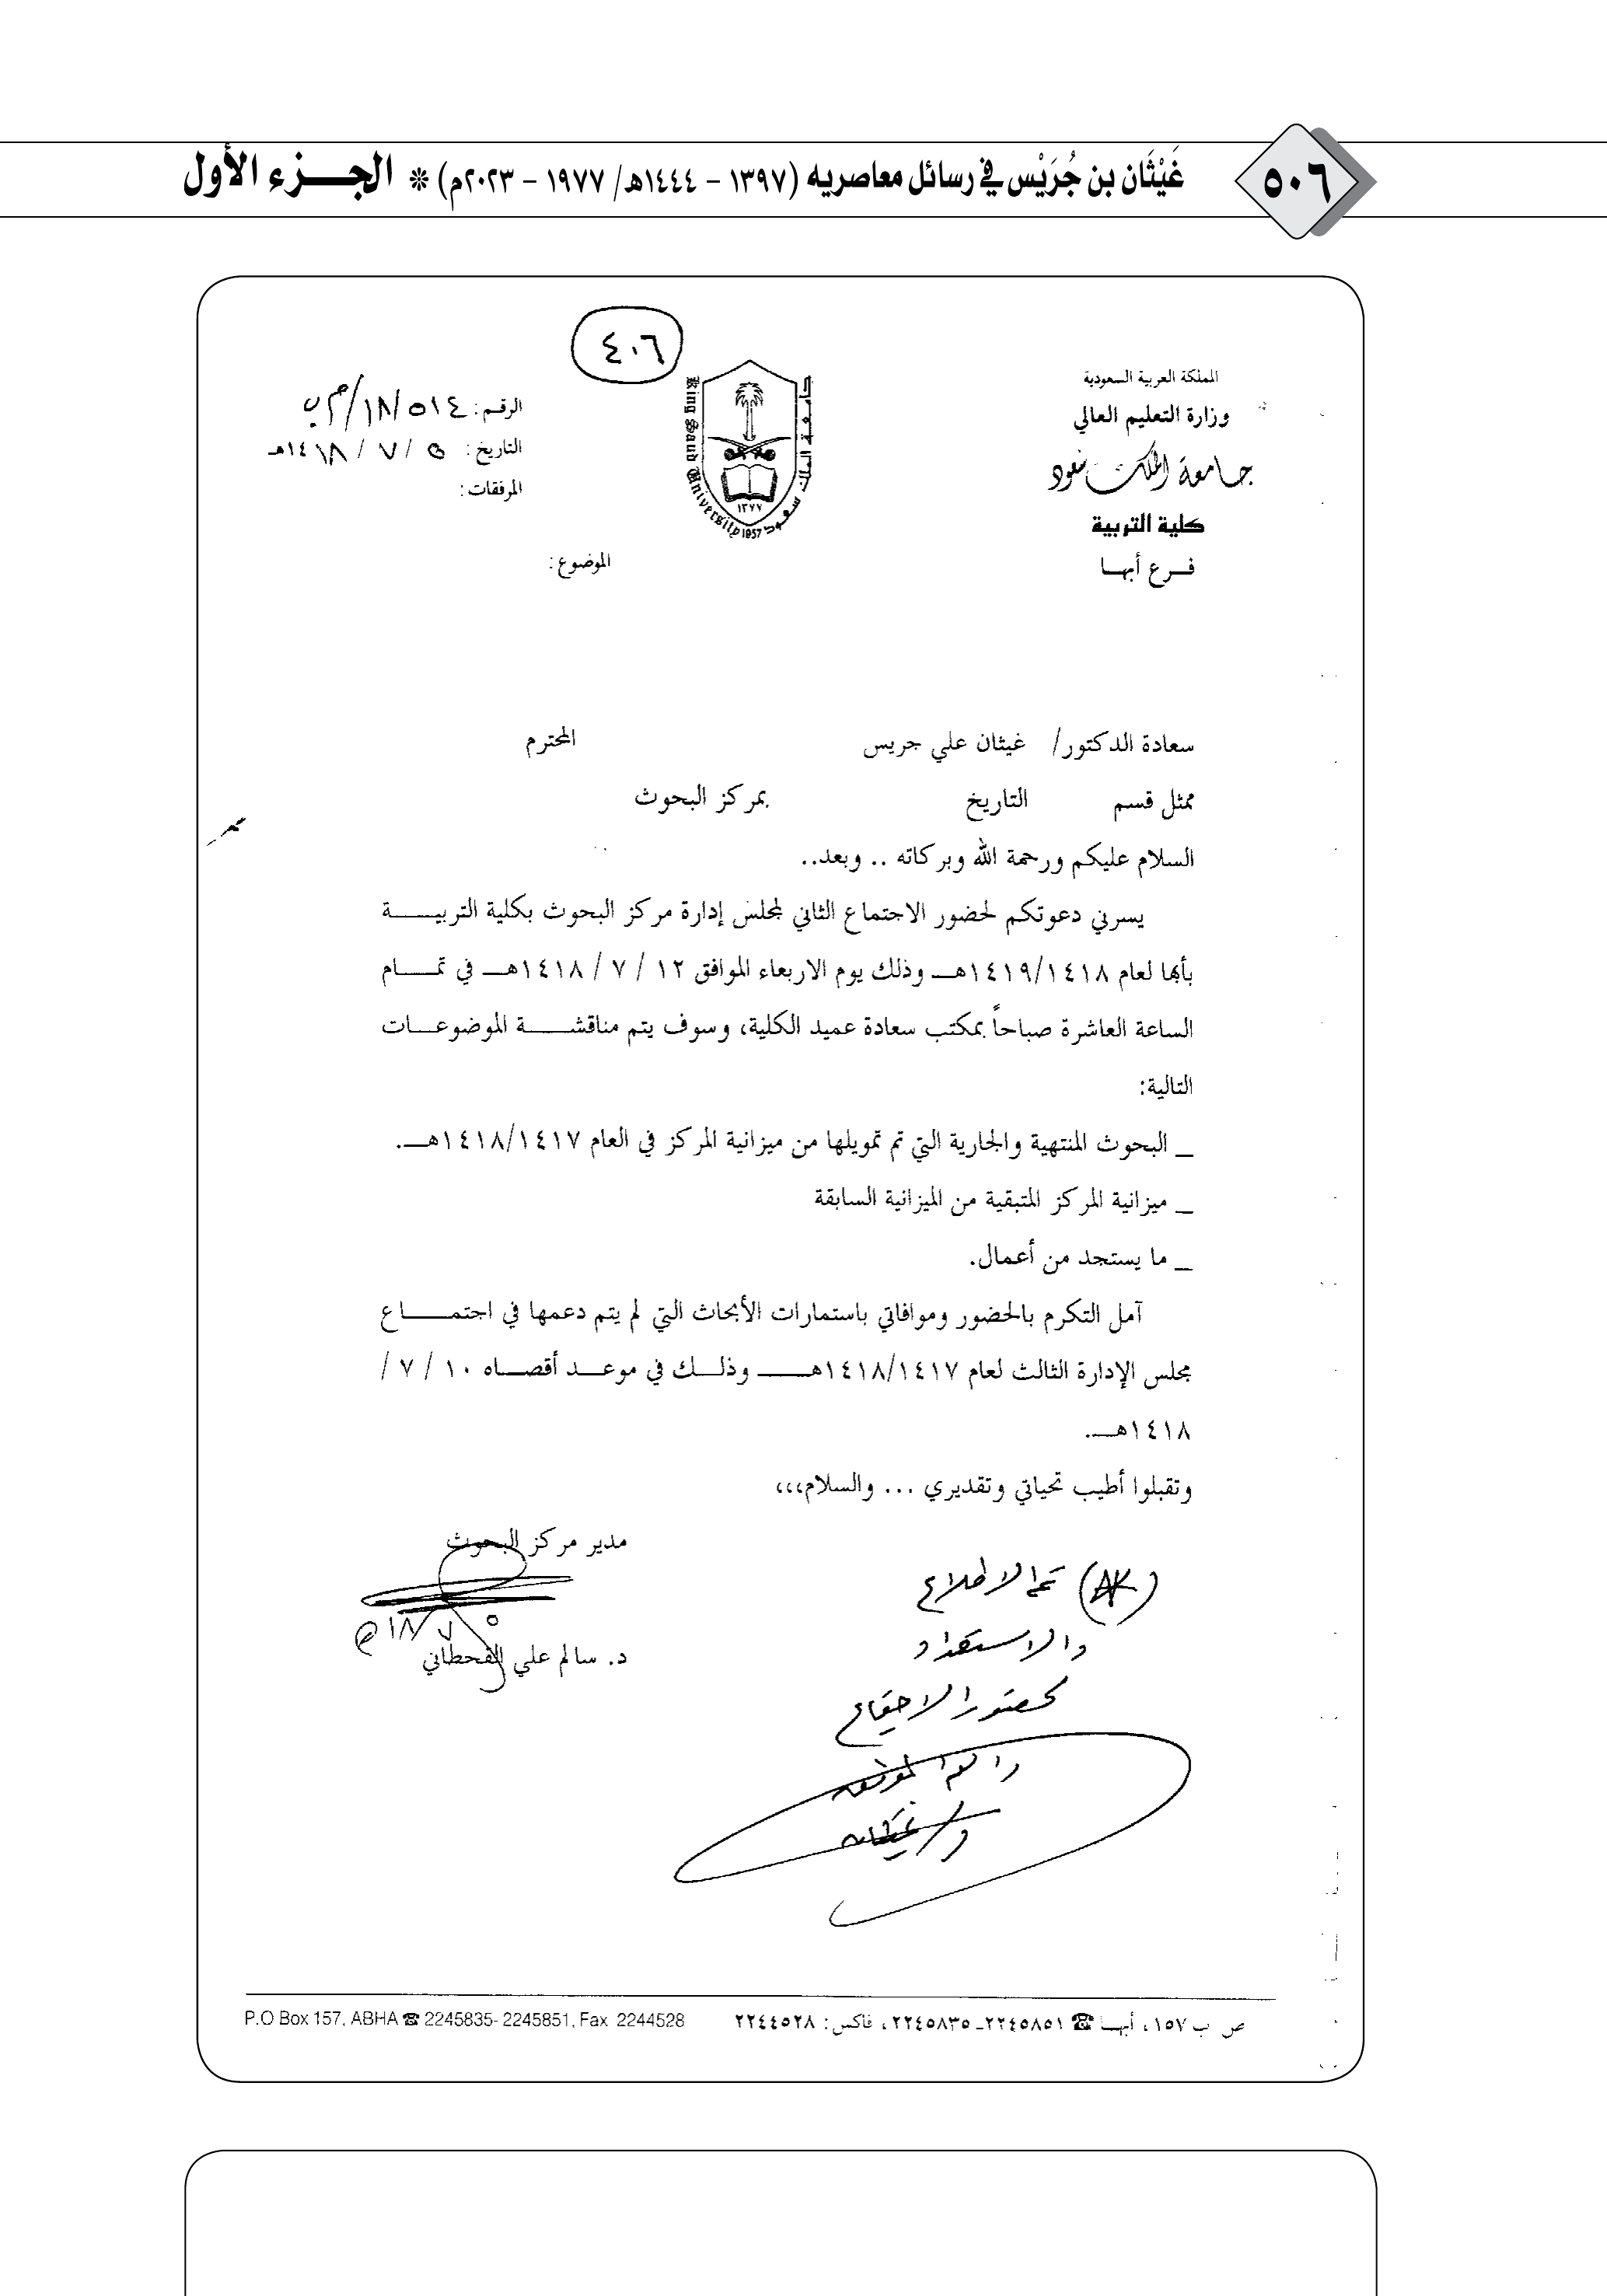 ٥٠٦
غَيْثَان بن جُرَيْس في رسائل معاصريه (١٣٩٧ – ١٤٤٤هـ/ ١٩٧٧ – ٢٠٢٣م) * الجـــزء الأول
٤٠٦
المملكة العربية السعودية
وزارة التعليم العالي
جامعة الملك سعود
كلية التربية
فـــرع أبهـــا
جامعة الملك سعود
King Saud University
١٣٧٧
1957
الرقم: ٥١٤/١٨/م ب
التاريخ: ٥ / ٧ / ١٤١٨هـ
المرفقات:
الموضوع:
سعادة الدكتور/ غيثان علي جريس المحترم
ممثل قسم التاريخ بمركز البحوث
السلام عليكم ورحمة الله وبركاته .. وبعد..
يسرني دعوتكم لحضور الاجتماع الثاني لمجلس إدارة مركز البحوث بكلية التربيـــــة
بأبها لعام ١٤١٩/١٤١٨هـــ وذلك يوم الاربعاء الموافق ١٢ / ٧ / ١٤١٨هـــ في تمـــــام
الساعة العاشرة صباحاً بمكتب سعادة عميد الكلية، وسوف يتم مناقشـــــة الموضوعـــات
التالية:
_ البحوث المنتهية والجارية التي تم تمويلها من ميزانية المركز في العام ١٤١٨/١٤١٧هـــ.
_ ميزانية المركز المتبقية من الميزانية السابقة
_ ما يستجد من أعمال.
آمل التكرم بالحضور وموافاتي باستمارات الأبحاث التي لم يتم دعمها في اجتمـــــاع
مجلس الإدارة الثالث لعام ١٤١٨/١٤١٧هـــــ وذلـــك في موعـــد أقصـــاه ١٠ / ٧ /
١٤١٨هـــ.
وتقبلوا أطيب تحياتي وتقديري ... والسلام،،،
مدير مركز البحوث
٥ ٧ ١٨
د. سالم علي القحطاني
تم الاطلاع
والاستعداد
لحضور الاجتماع
والله الموفق
د/ غيثان
ص ب ١٥٧، أبهــا ☎ ٢٢٤٥٨٥١ـ ٢٢٤٥٨٣٥، فاكس: ٢٢٤٤٥٢٨
P.O Box 157, ABHA ☎ 2245835- 2245851, Fax 2244528